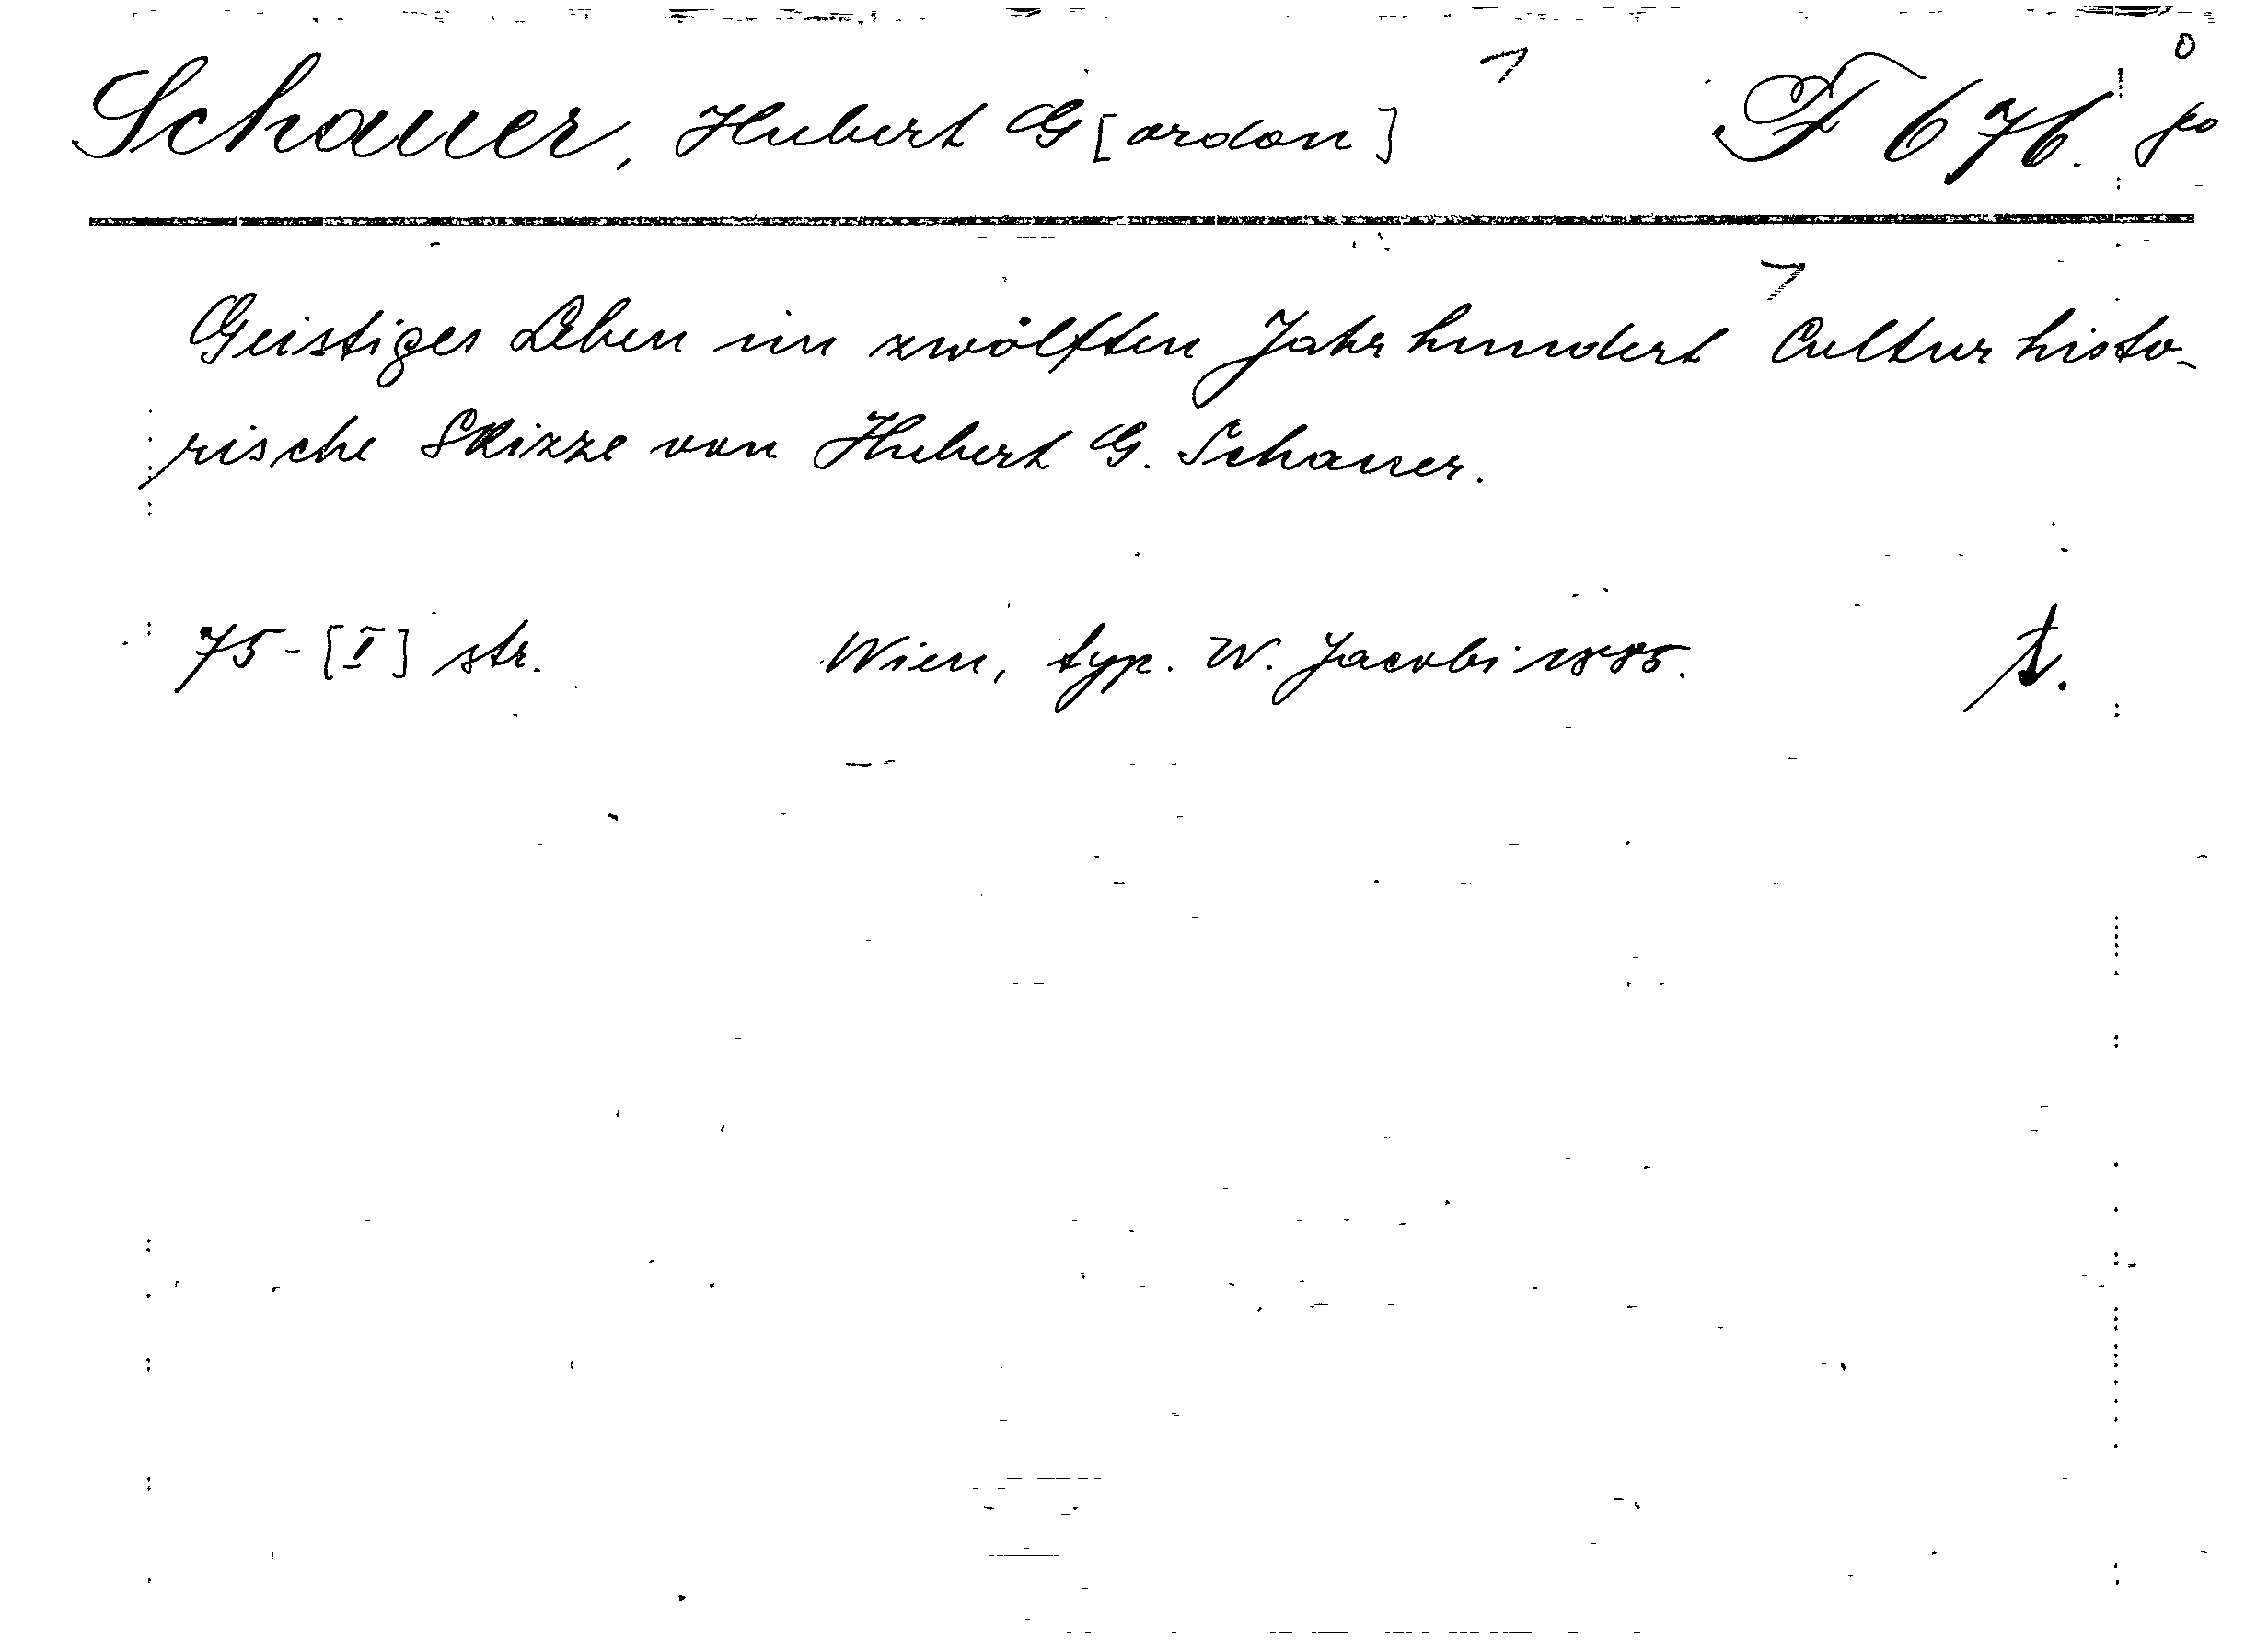 Schauer, Hubert G[ordon] F 676.
Geistiges Leben im zwölften Jahrhundert Culturhisto-
rische Skizze von Hubert G. Schauer.
75-[I] str. Wien, typ. W. Jacobi 1885.